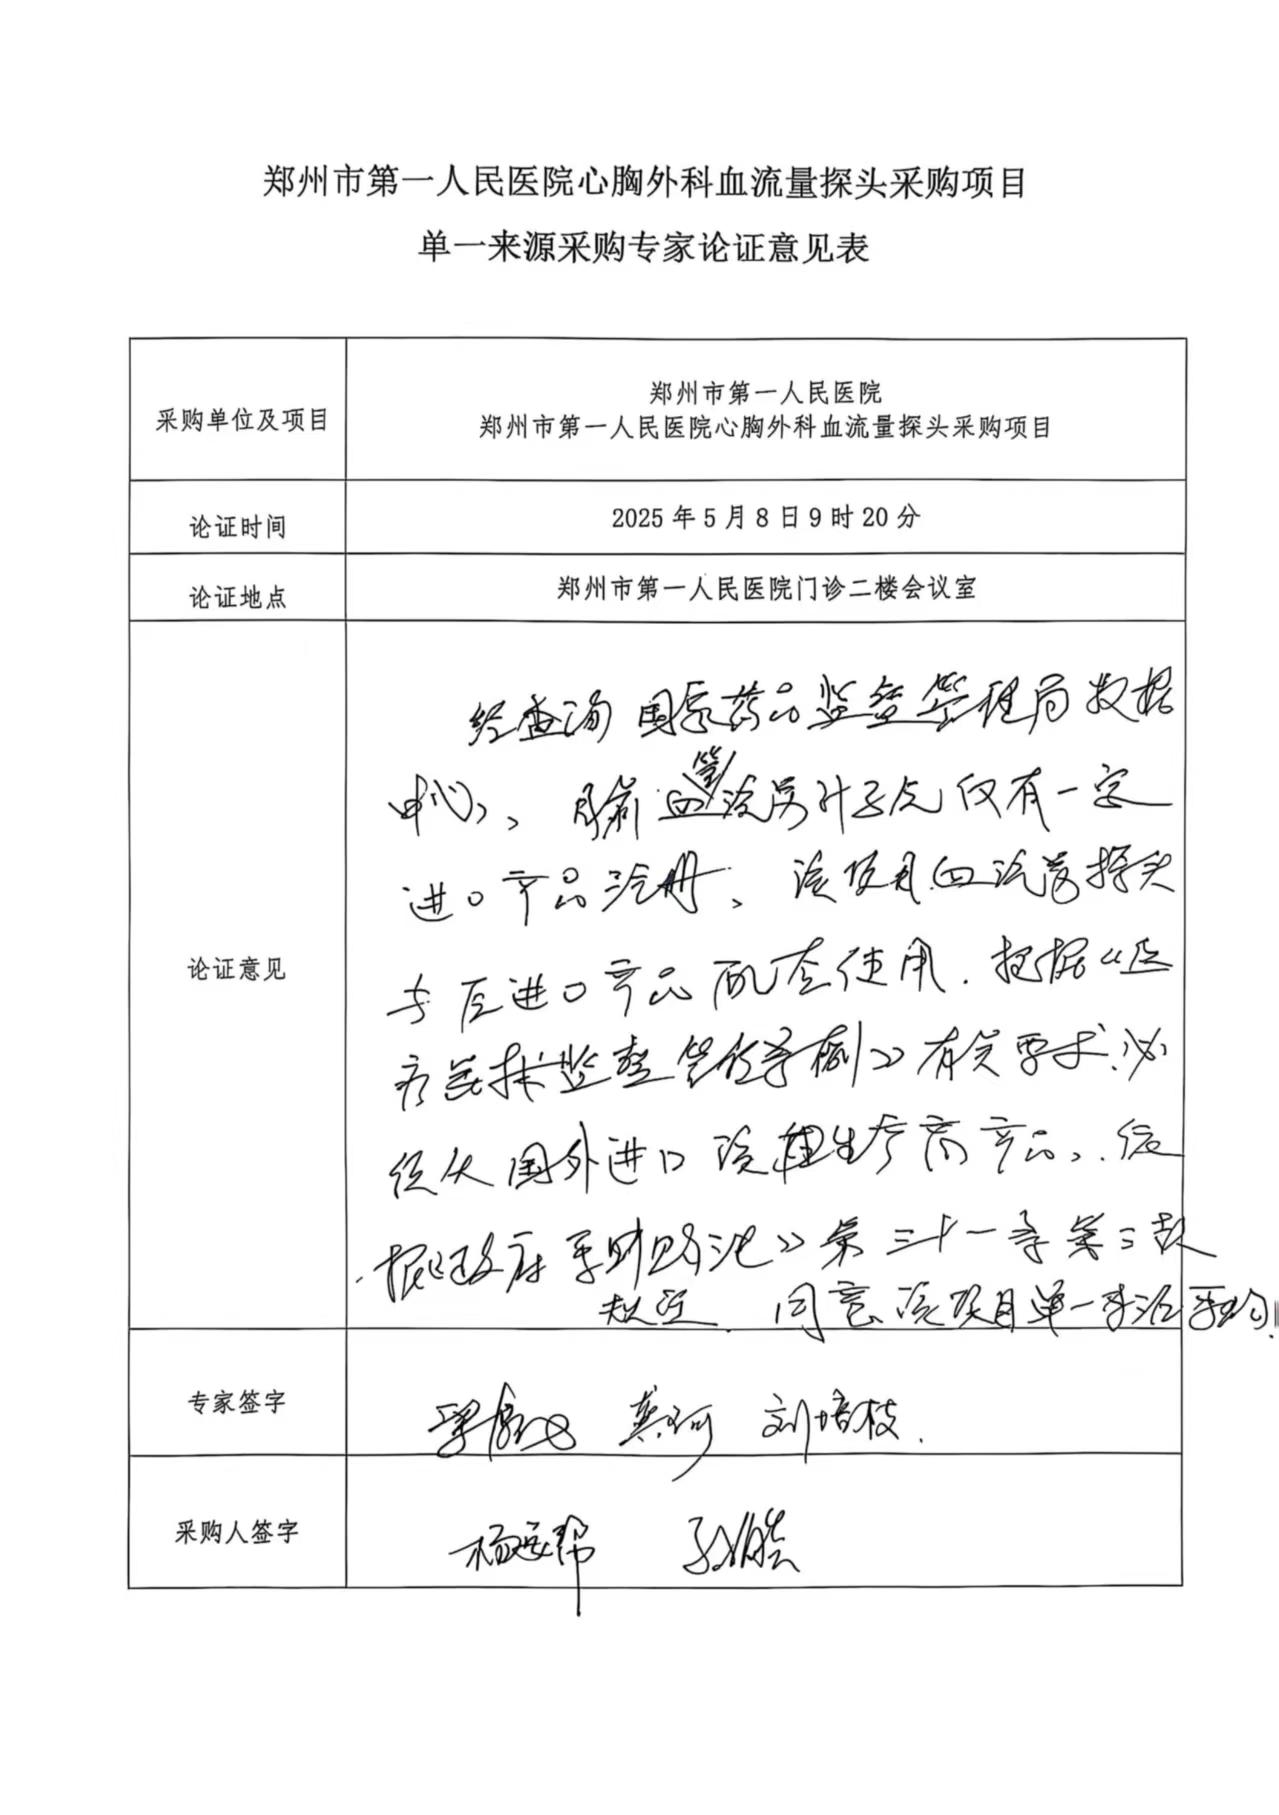 郑州市第一人民医院心胸外科血流量探头采购项目
单一来源采购专家论证意见表
采购单位及项目
郑州市第一人民医院
郑州市第一人民医院心胸外科血流量探头采购项目
论证时间
2025年5月8日9时20分
论证地点
郑州市第一人民医院门诊二楼会议室
论证意见
经查询国家药品监督管理局数据
中心，目前血管流量计系统仅有一家
进口产品注册，该项目血流量探头
与原进口产品配套使用，根据《医
疗器械监督管理条例》有关要求，必
须从国外进口该生产商产品，依
据《政府采购法》第三十一条第二款
规定，同意该项目单一来源采购。
专家签字
刘培枝
采购人签字